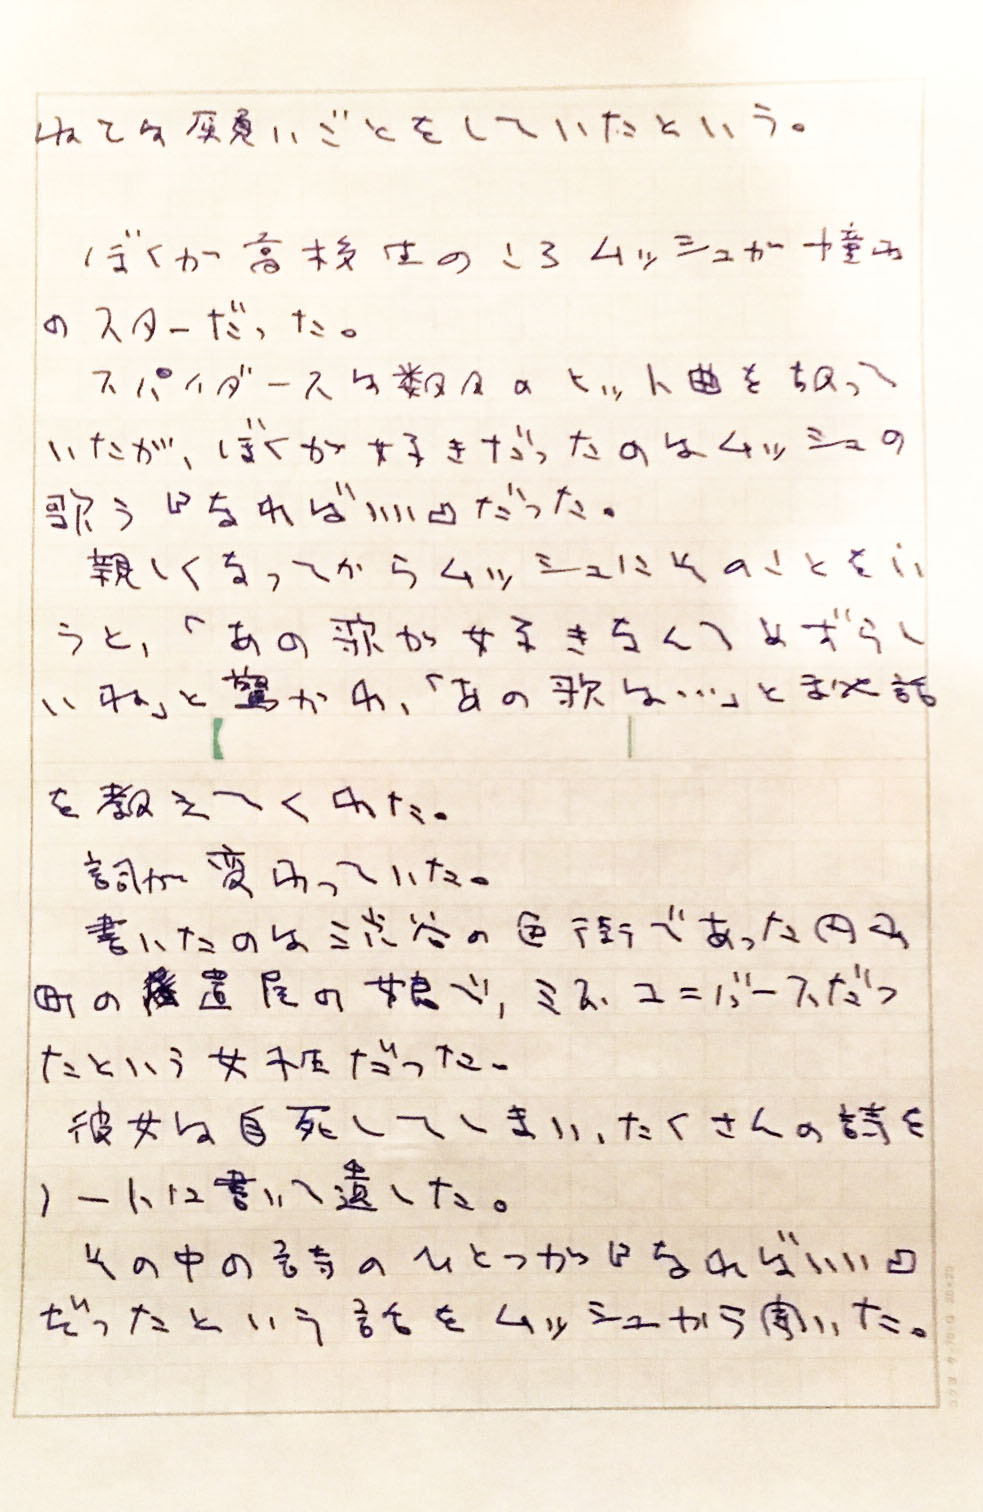 ねては願いごとをしていたという。
ぼくが高校生のころムッシュが憧れ
のスターだった。
スパイダースは数々のヒット曲を放って
いたが、ぼくが好きだったのはムッシュの
歌う「なればいい」だった。
親しくなってからムッシュにそのことをい
うと、「あの歌が好きなんてめずらし
いね」と驚かれ、「あの歌は…」と話
を教えてくれた。
詞が変わっていた。
書いたのは渋谷の色街であった円山
町の置屋の娘で、ミス・ユニバースだっ
たという女性だった。
彼女は自死してしまい、たくさんの詩を
ノートに書いて遺した。
その中の詩のひとつが「なればいい」
だったという話をムッシュから聞いた。